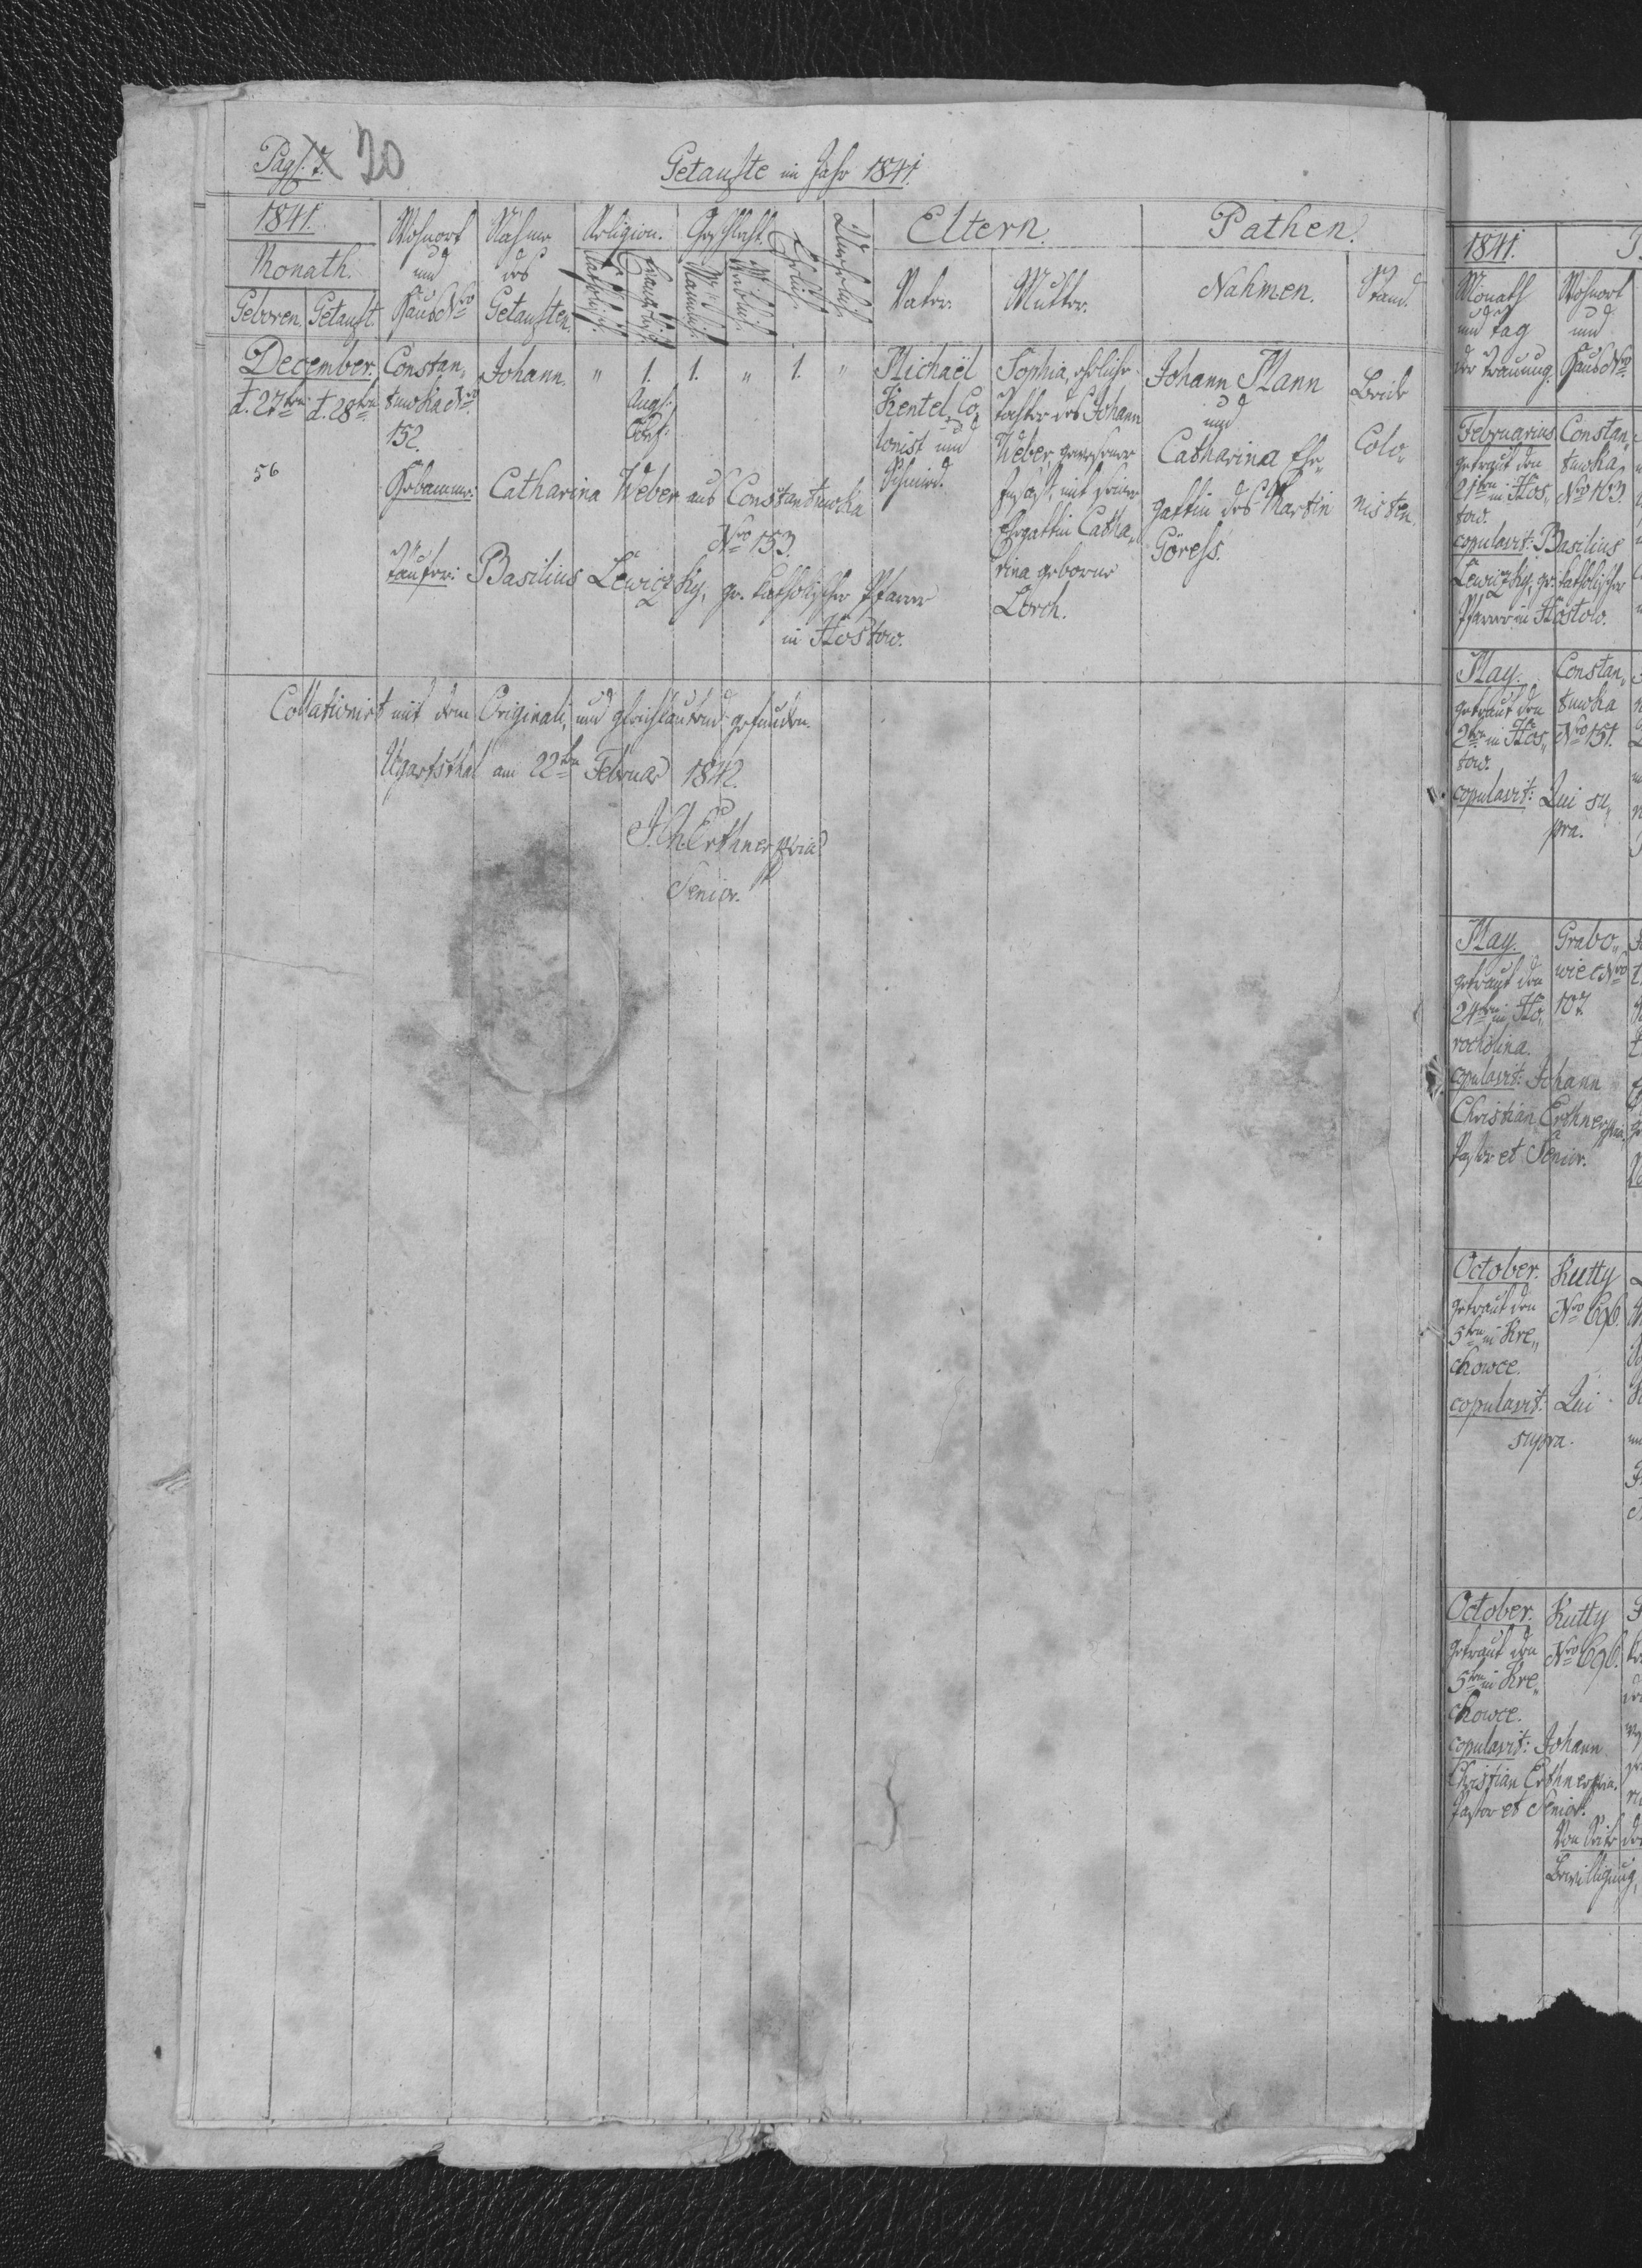 Pag. 7. 20
Getaufte im Jahr 1841.
1841.
Monath.
Geboren. Getauft.
Wohnort
und
Haus Nro
Nahme
des
Getauften.
Religion.
Katholisch.
Evangelisch.
Geschlecht.
Männlich.
Weiblich.
Ehelich.
Unehelich.
Eltern.
Vater. Mutter.
Pathen.
Nahmen. Stand.
December.
d. 27ten d. 28ten
56
Constan„
tuwka Nro
152.
Johann.
" 1. 1. " 1. "
Augs.
Conf.
Michaël
Kentel, Co„
lonist und
Schmied.
Sophia, eheliche
Tochter des Johann
Weber, gewesener
Insass, mit seiner
Ehegattin Catha„
rina geborne
Lorch.
Johann Mann
und
Catharina Ehe„
gattin des Martin
Göress.
Beide
Colo„
nisten.
Hebamme: Catharina Weber aus Constantuwka
Nro 153.
Täufer: Basilius Lewiczky, gr. katholischer Pfarrer
in Hostow.
Collationirt mit dem Originali, und gleichlautend gefunden.
Ugartsthal am 22ten Februar 1842.
J. Ch. Erthner mpria
Senior.
1841.
Monath
und Tag
der Trauung.
Wohnort
und
Haus Nro
Februarius
getraut den
21ten in Hos„
tow.
Constan„
tuwka,
Nro 103.
copulavit: Basilius
Lewiczky, gr. katholischer
Pfarrer in Hostow.
May.
getraut den
2ten in Hos„
tow.
Constan„
tuwka
Nro 151.
copulavit: Qui su„
pra.
May.
getraut den
24ten in Ho„
rocholina.
Grabo„
wie Nro
107.
copulavit: Johann
Christian Erthner mpria.
Pastor et Senior.
October.
getraut den
5ten in Kre„
chowce.
Kutty
Nro 696.
copulavit: Qui
supra.
October.
getraut den
5ten in Kre„
chowce.
Kutty
Nro 696.
copulavit: Johann
Christian Erthner mpria.
Pastor et Senior.
Von Seite
Bewilligung,